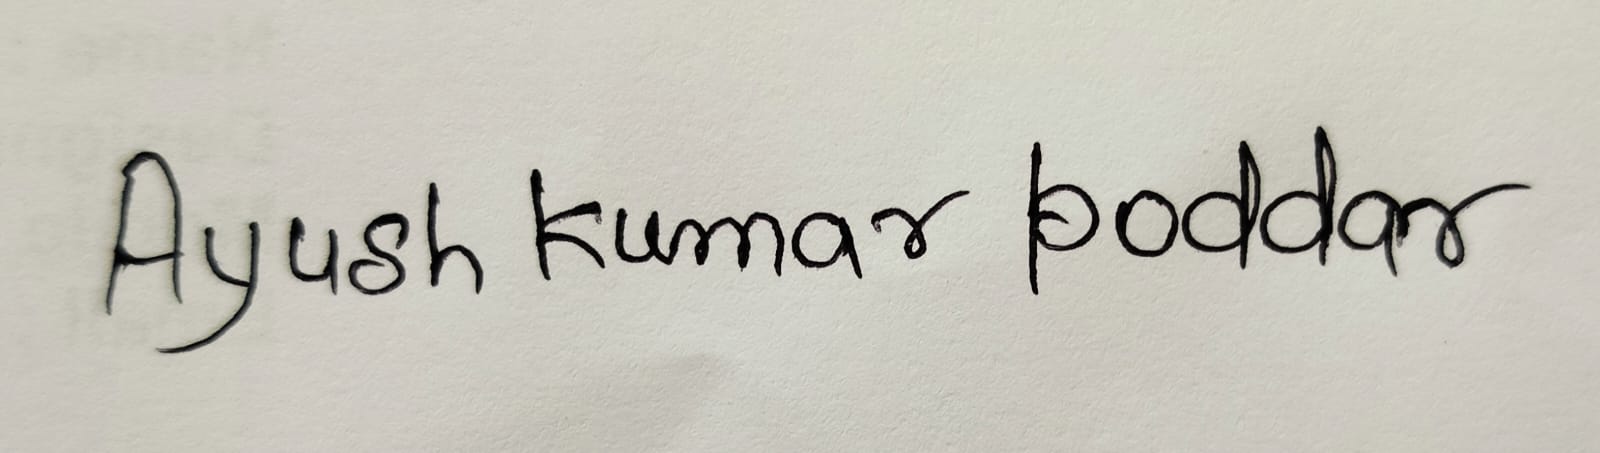 Ayush kumar poddar